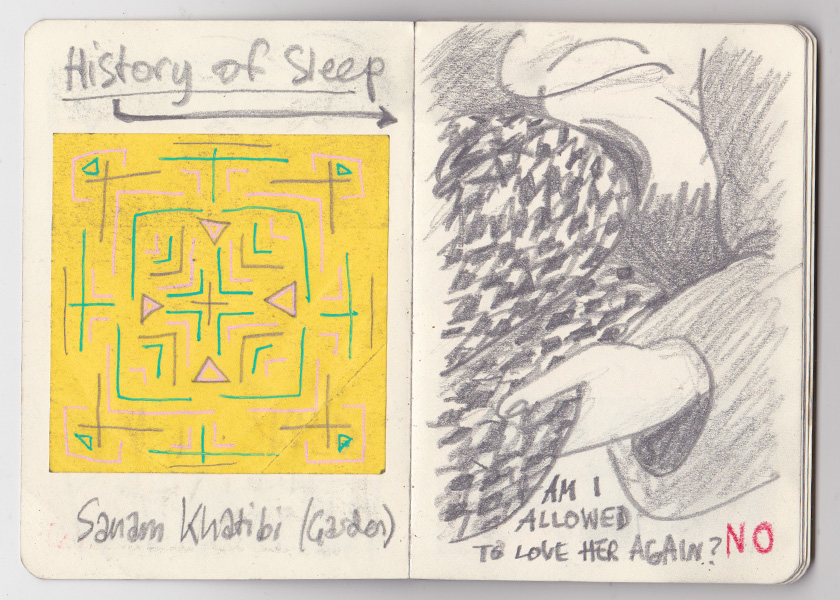 History of Sleep
Sanam Khatibi (Garden)
AM I
ALLOWED
TO LOVE HER AGAIN? NO